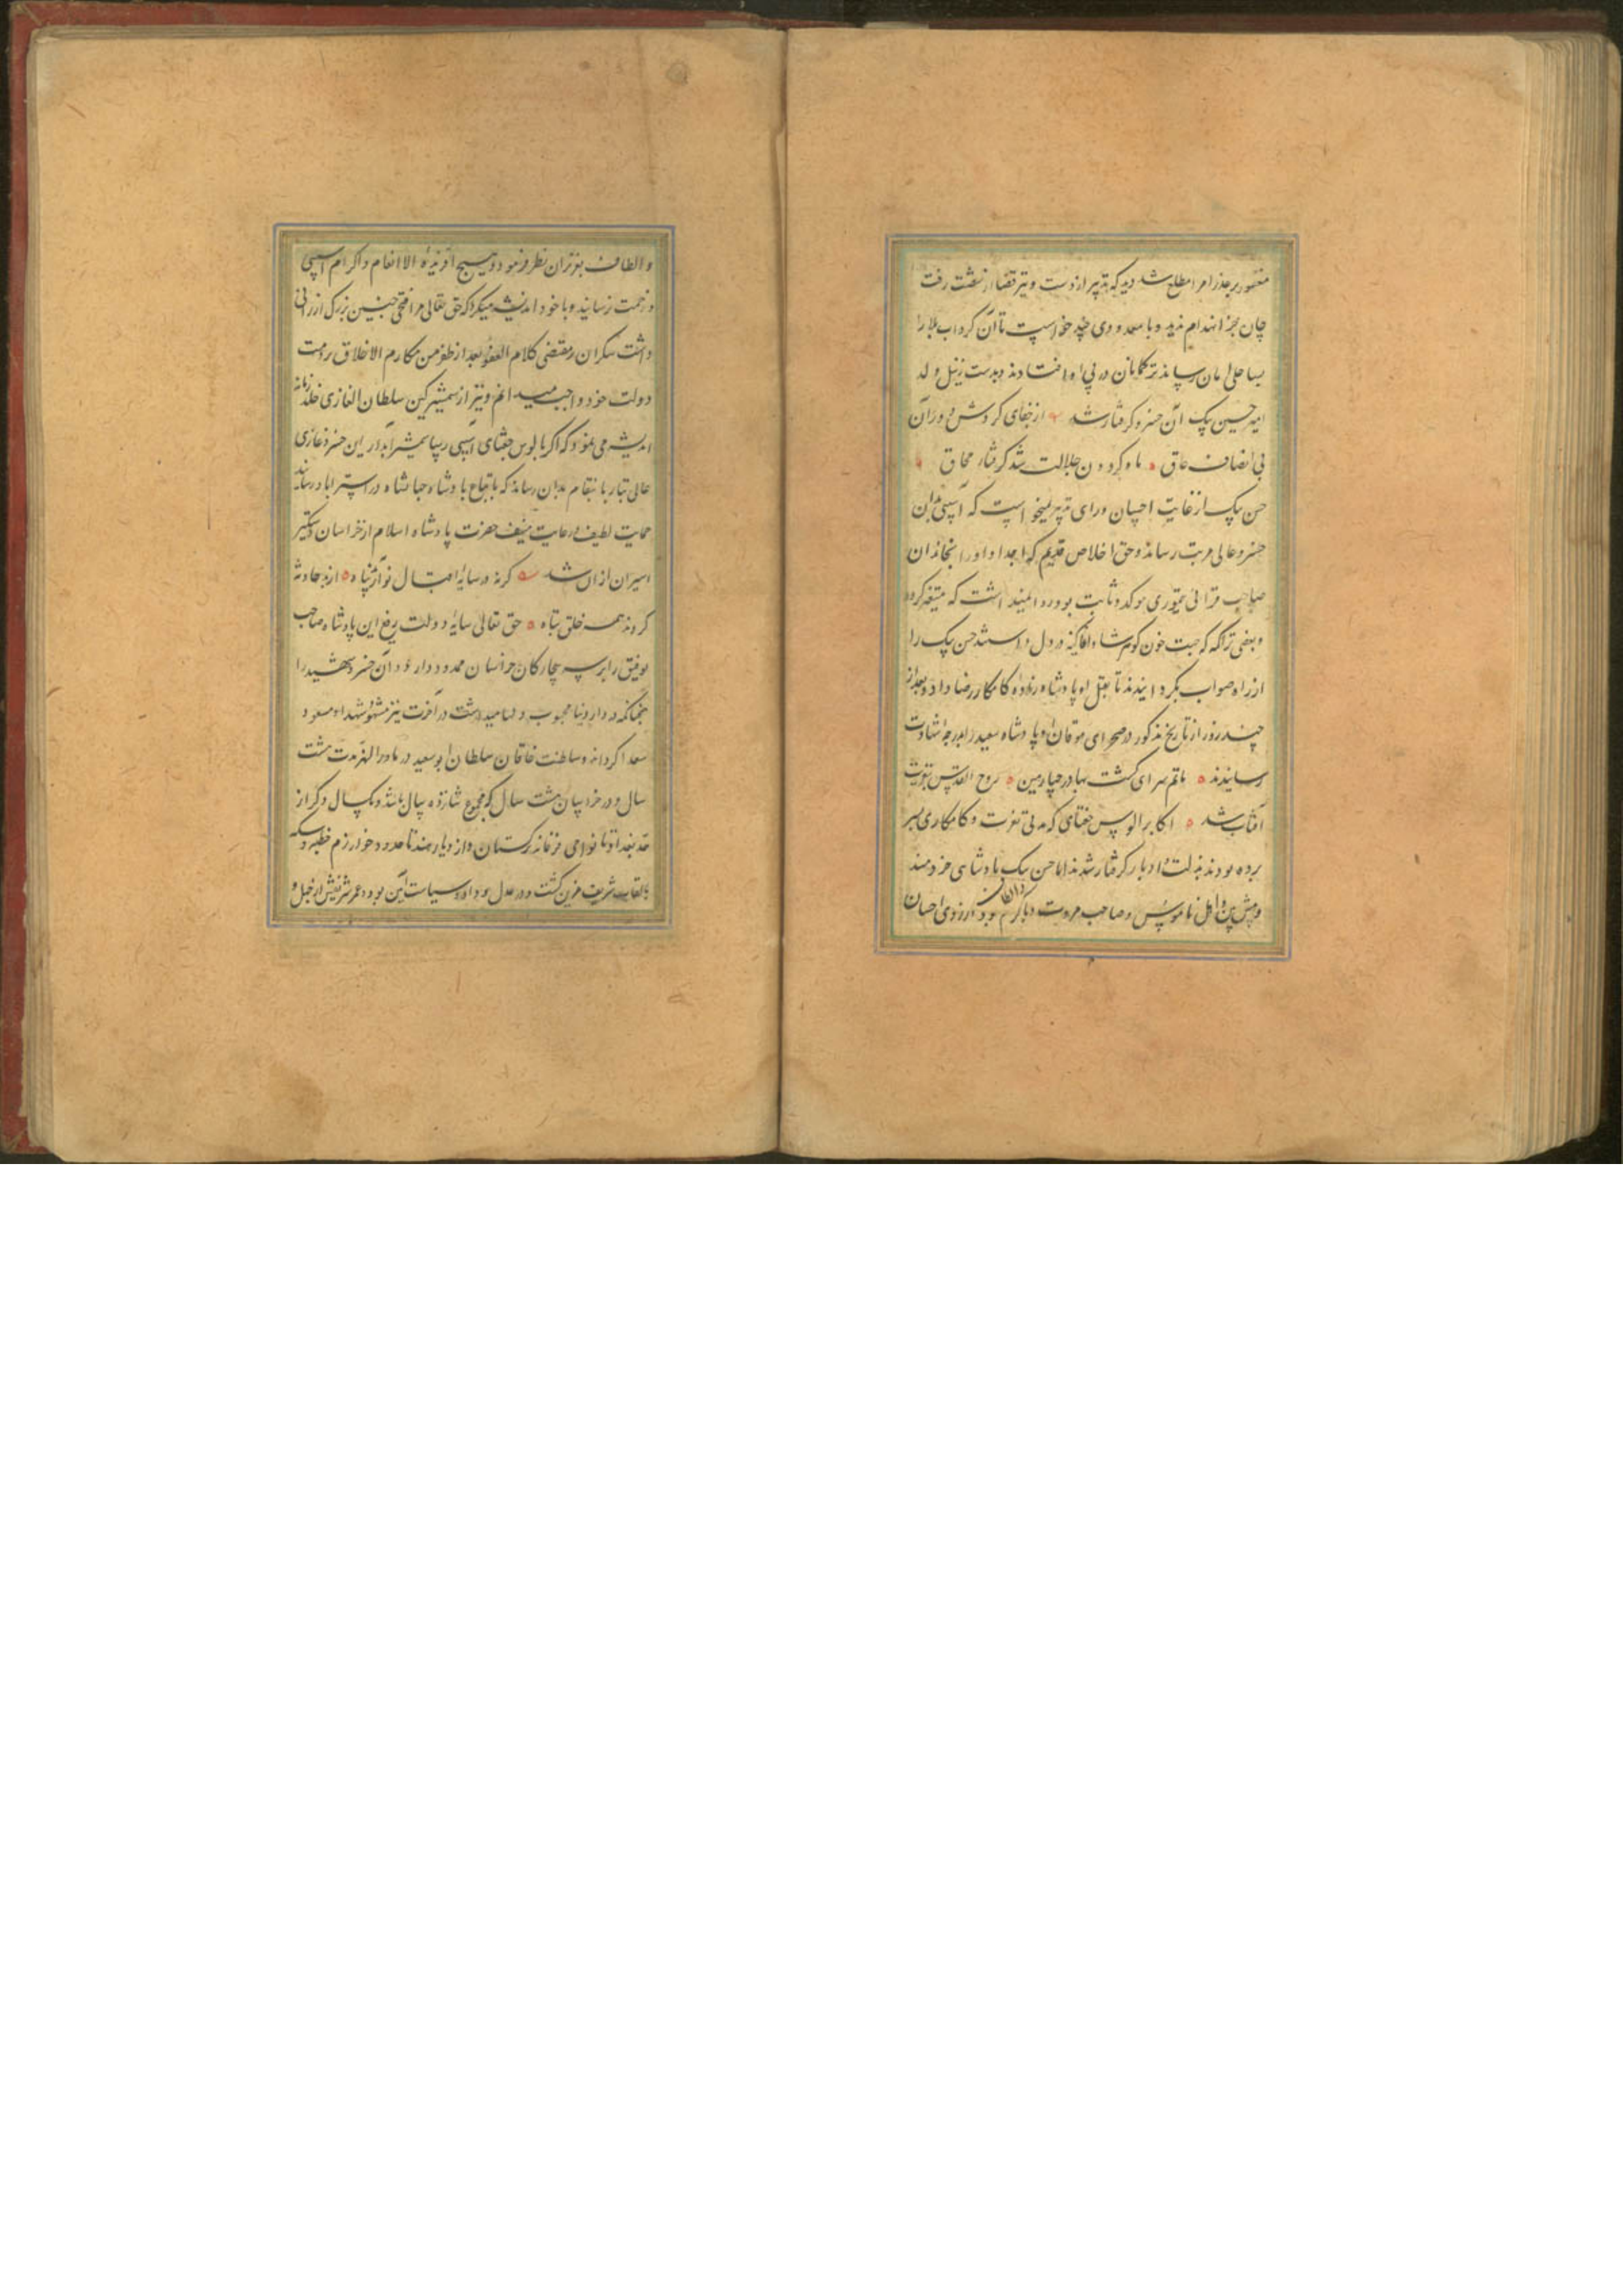 مغفور بر عذر امرا مطلع شد دید که تدبیر از دست و تیر قضا از شست رفت
چان بجز انهدام ندید و با معدودی چند خواست تا آن گرداب بلا را
بساحل امان رساند ترکمانان در پی او افتادند و بدست زینل ولد
امیر حسن بیک آن خسرو گرفتار شد از جفای گردش دوران
بی انصاف عاق ماه گردون جلالت شد گرفتار محاق
حسن بیک از غایت احسان و رای تدبیر میخواست که آسیبی بدان
خسرو عالی مرتبت رساند و حق اخلاص قدیم که اجداد او را بخاندان
صاحب قرانی تیموری موکد و ثابت بود روا نمیداشت که متغیر گردد
و بعضی تراکمه که جهت خون گوهرشاد آغا کینه در دل داشتند حسن بیک را
از راه صواب بگردانیدند تا بقتل او پادشاه زاده کامکار رضا داد و بعد از
چند روز از تاریخ مذکور در صحرای موقان او پادشاه سعید را بدرجه شهادت
رسانیدند ماتم سرای گشت بهادر چارمین روح القدس بتعزیت
آفتاب شد اکابر الوس جغتای که مدتی بعزت و کامکاری بسر
برده بودند بذلت و ادبار گرفتار شدند اما حسن بیک پادشاهی خردمند
و پیش بین و اهل ناموس و صاحب مروت و با کرم بود از روی احسان
و الطاف بعزیزان نظر فرمود و هیچ آفریده الا انعام و اکرام آسیبی
و زحمت نرسانید و با خود اندیشه میکرد که حق تعالی مرا فتحی چنین بزرگ ارزانی
داشت شکران بمقتضی کلام العفو بعد الظفر من مکارم الاخلاق بر ذمت
دولت خود واجب میدانم و نیز از شمشیر کین سلطان الغازی خلد زمانه
اندیشه می نمود که اگر بالوس جغتای آسیبی رسد شمشیر آبدار این خسرو غازی
عالی تبار بانتقام بدان رساند که باتباع پادشاه جهانشاه در استراباد رسانید
حمایت لطیف و رعایت منیف حضرت پادشاه اسلام از خراسان دستگیر
اسیران ازان شد گرنه در سایه اقبال تو آرند پناه از بد حادثه
گردند همه خلق تباه حق تعالی سایه دولت رفیع این پادشاه صاحب
توفیق را بر سر چار کان خراسان ممدود دارد و آن خسرو شهید را
چنانکه در دار دنیا محبوب دلها میداشت در آخرت نیز مشهور شهدا و مسعود
سعدا گرداند و سلطنت خاقان سلطان ابوسعید در ماورالنهر مدت هشت
سال و در خراسان هشت سال که مجموع شانزده سال باشد و یکسال دگر از
حد بغداد تا نواحی فرغانه ترکستان و از دیار هند تا حدود خوارزم خطبه و سکه
بالقاب شریفه مزین گشت و در عدل بود و داد و سیاست آئین بود و عمر شریفش از چهل و